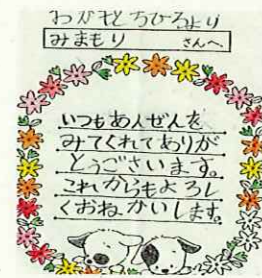 わがもとちひろより
みまもり さんへ
いつもあんぜんを
みてくれてありが
とうございます。
これからもよろし
くおねがいします。